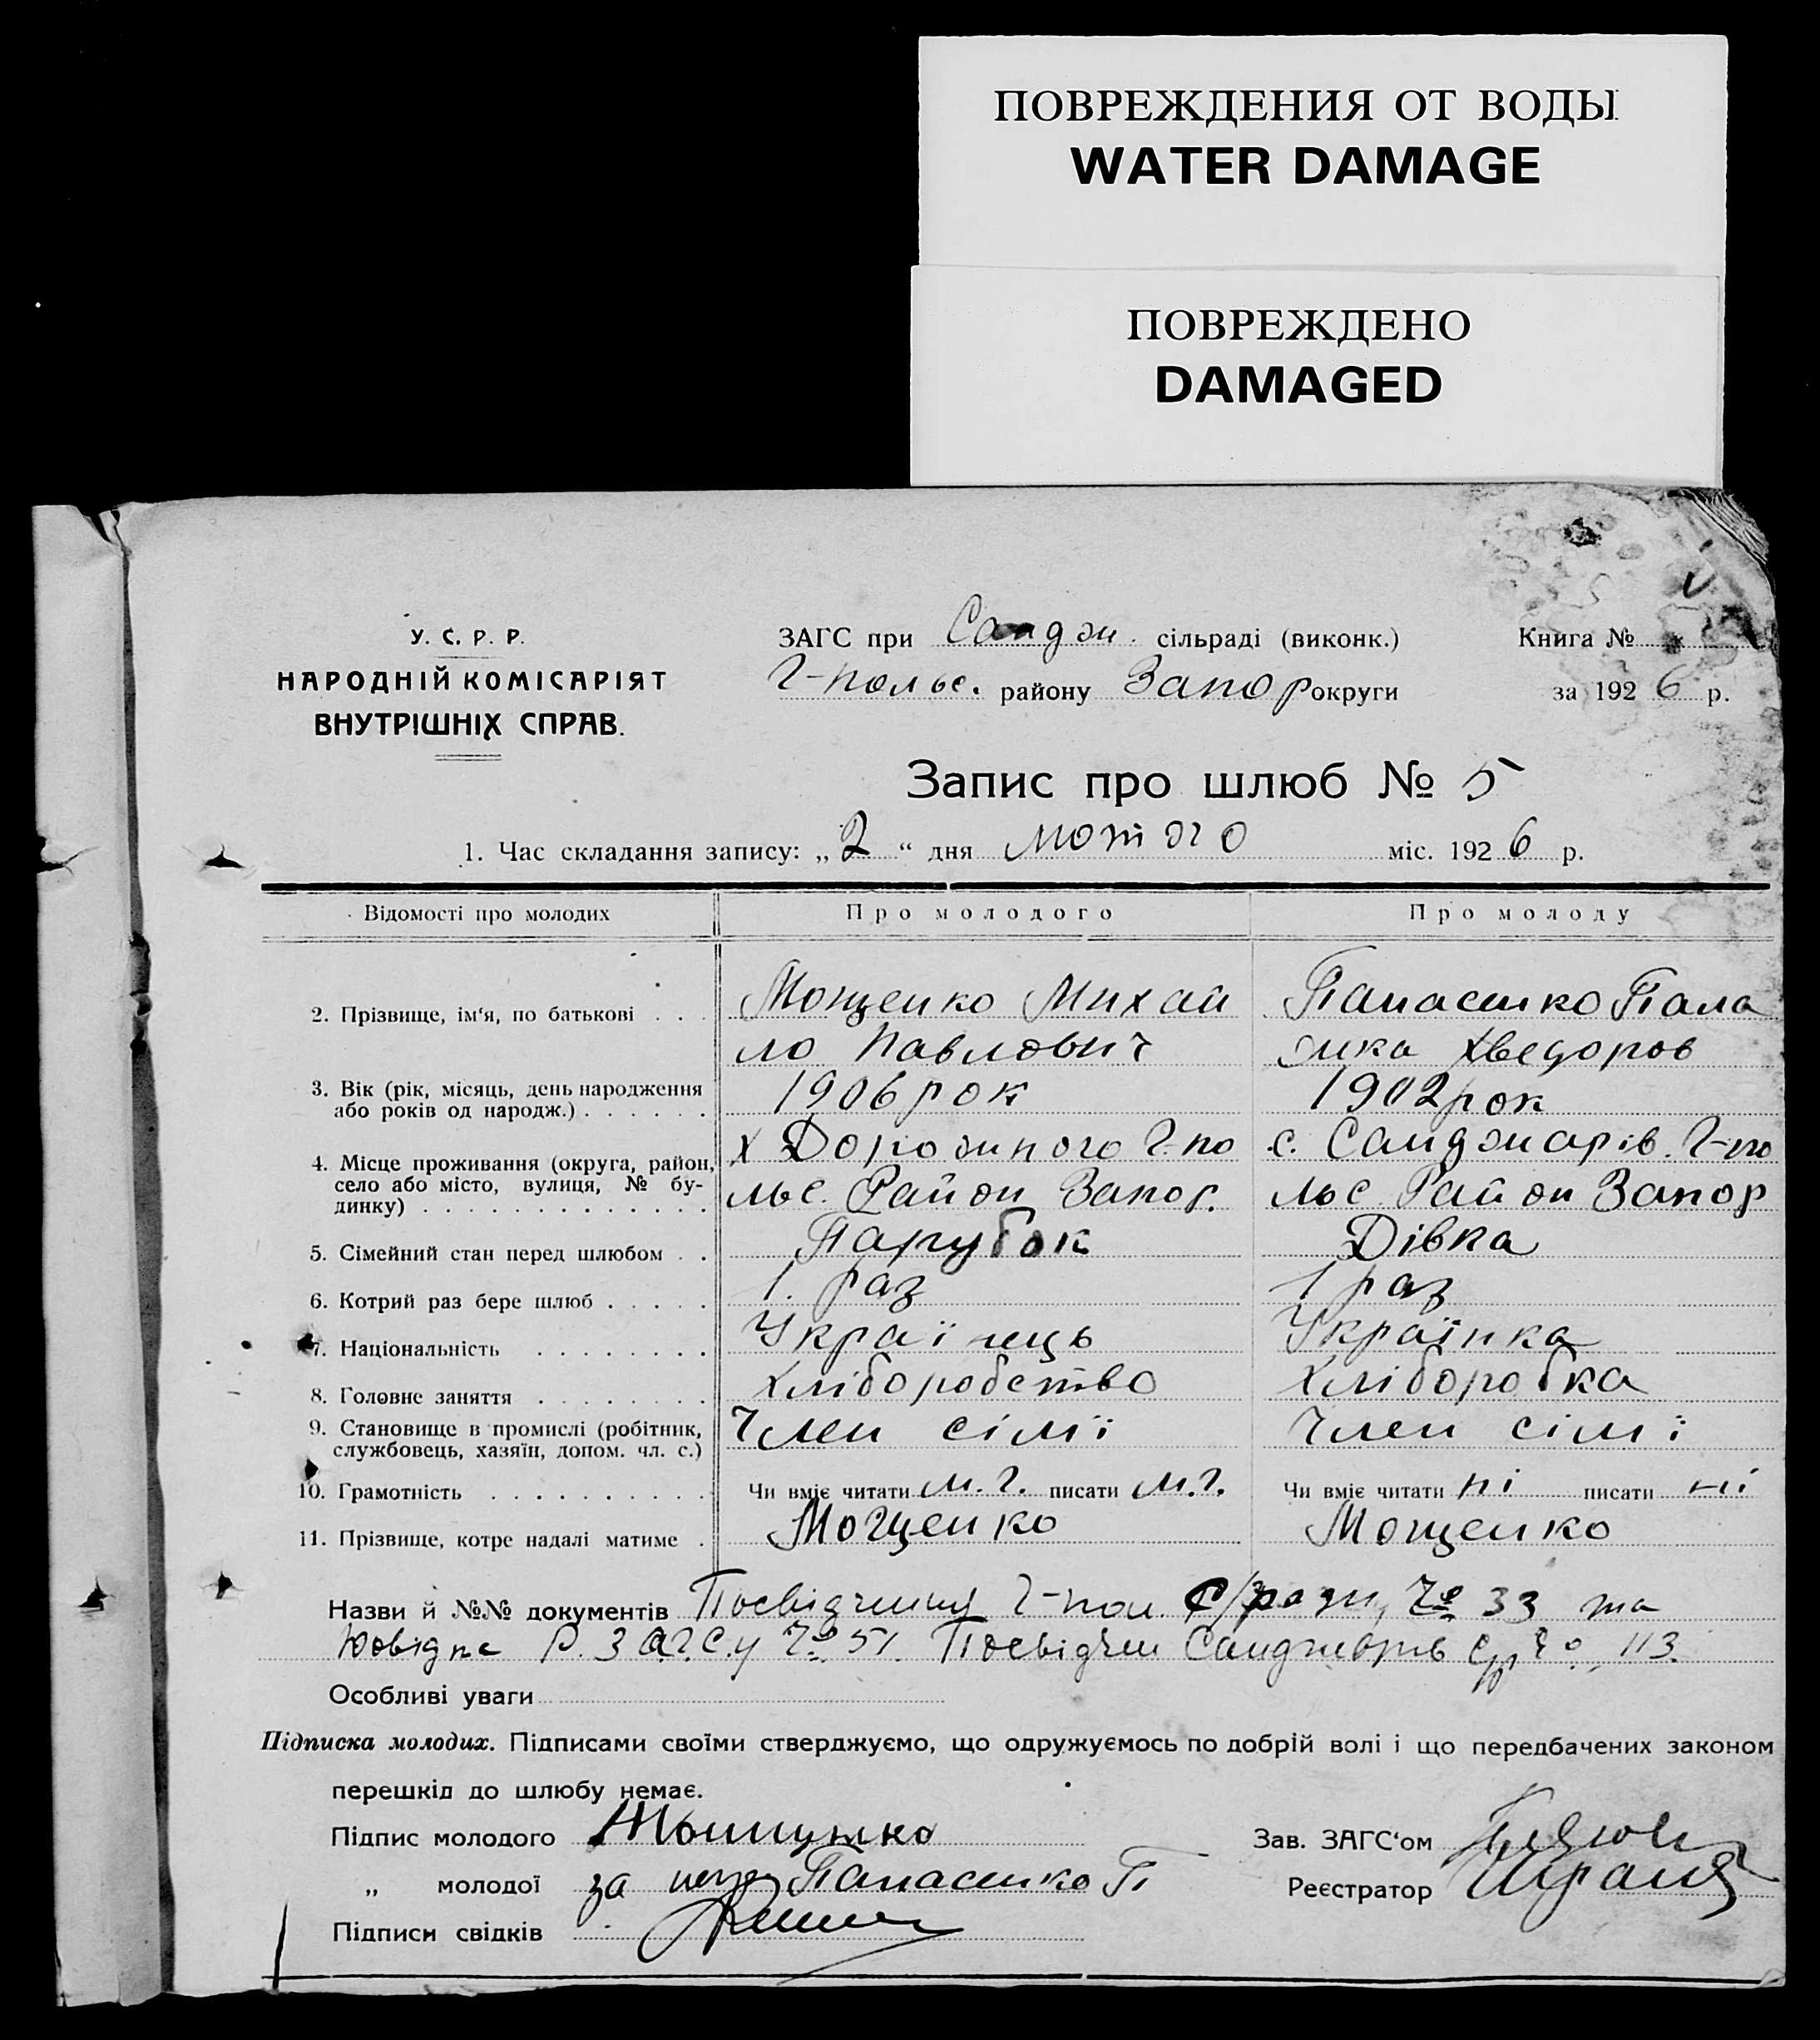 ПОВРЕЖДЕНИЯ ОТ ВОДЫ
WATER DAMAGE
ПОВРЕЖДЕНО
DAMAGED
У. С. Р. Р.
НАРОДНІЙ КОМІСАРІЯТ
ВНУТРІШНІХ СПРАВ.
ЗАГС при Санджи. сільраді (виконк.)
Г-польс. району Запор округи
Книга №
за 1926 р.
Запис про шлюб № 5
1. Час складання запису: „2“ дня лютого міс. 1926 р.
Відомості про молодих Про молодого Про молоду
2. Прізвище, ім‘я, по батькові . . . Мощенко Михай Панасенко Пала
ло Павлович жка Хведоров
3. Вік (рік, місяць, день народження
або років од народж.) . . . . . . 1906 рок 1902 рок
4. Місце проживання (округа, район,
село або місто, вулиця, № бу-
динку) . . . . . . . . . . . . .
х Дорожного Г-по с. Санджарів. Г-по
льс. Район Запор. льс Район Запор
5. Сімейний стан перед шлюбом . . Парубок Дівка
6. Котрий раз бере шлюб . . . . . 1. раз 1 раз
7. Національність . . . . . . . . Українець Українка
8. Головне заняття . . . . . . . . Хліборобство Хліборобка
9. Становище в промислі (робітник,
службовець, хазяїн, допом. чл. с.) Член сімї Член сімї
10. Грамотність . . . . . . . . . . Чи вміє читати м.г. писати м.г. Чи вміє читати ні писати ні
11. Прізвище, котре надалі матиме . Мощенко Мощенко
Назви й №№ документів Посвідчення Г-пол. С/ради, № 33 та
Р. ЗАГСу № 51. Посвідчен Санджарів с/р № 113.
Особливі уваги
Підписка молодих. Підписами своїми стверджуємо, що одружуємось по добрій волі і що передбачених законом
перешкід до шлюбу немає.
Підпис молодого
„ молодої за Панасенко П
Підписи свідків
Зав. ЗАГС‘ом
Реєстратор